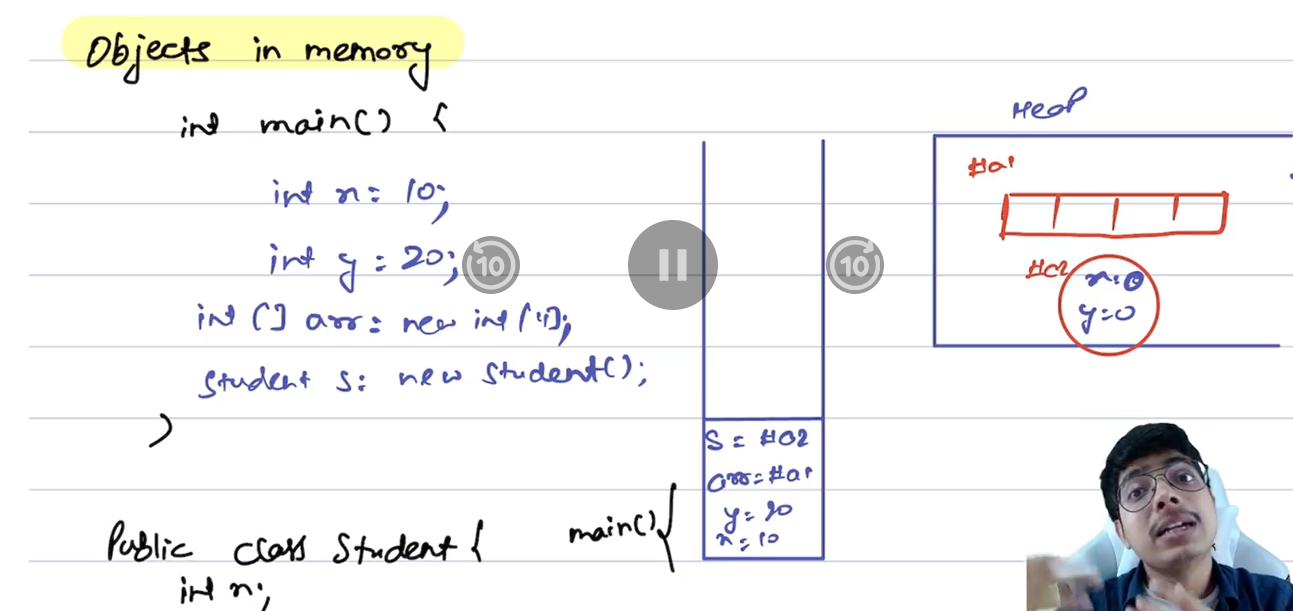 Objects in memory
int main() {
int x = 10;
int y = 20;
int [] arr = new int[4];
Student s = new Student();
}
Public class Student {
int x;
main() {
S = #a2
arr = #a1
y = 20
x = 10
Heap
#a1
#a2
x = 0
y = 0
10
10